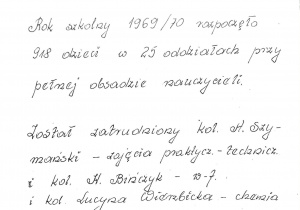 Rok szkolny 1969/70 rozpoczęło
918 dzieci w 25 oddziałach przy
pełnej obsadzie nauczycieli.
Został zatrudniony kol. H. Szy-
mański - zajęcia praktycz.-technicz.
i kol. H. Bińczyk - w-f.
i kol. Lucyna Wierzbicka - chemia